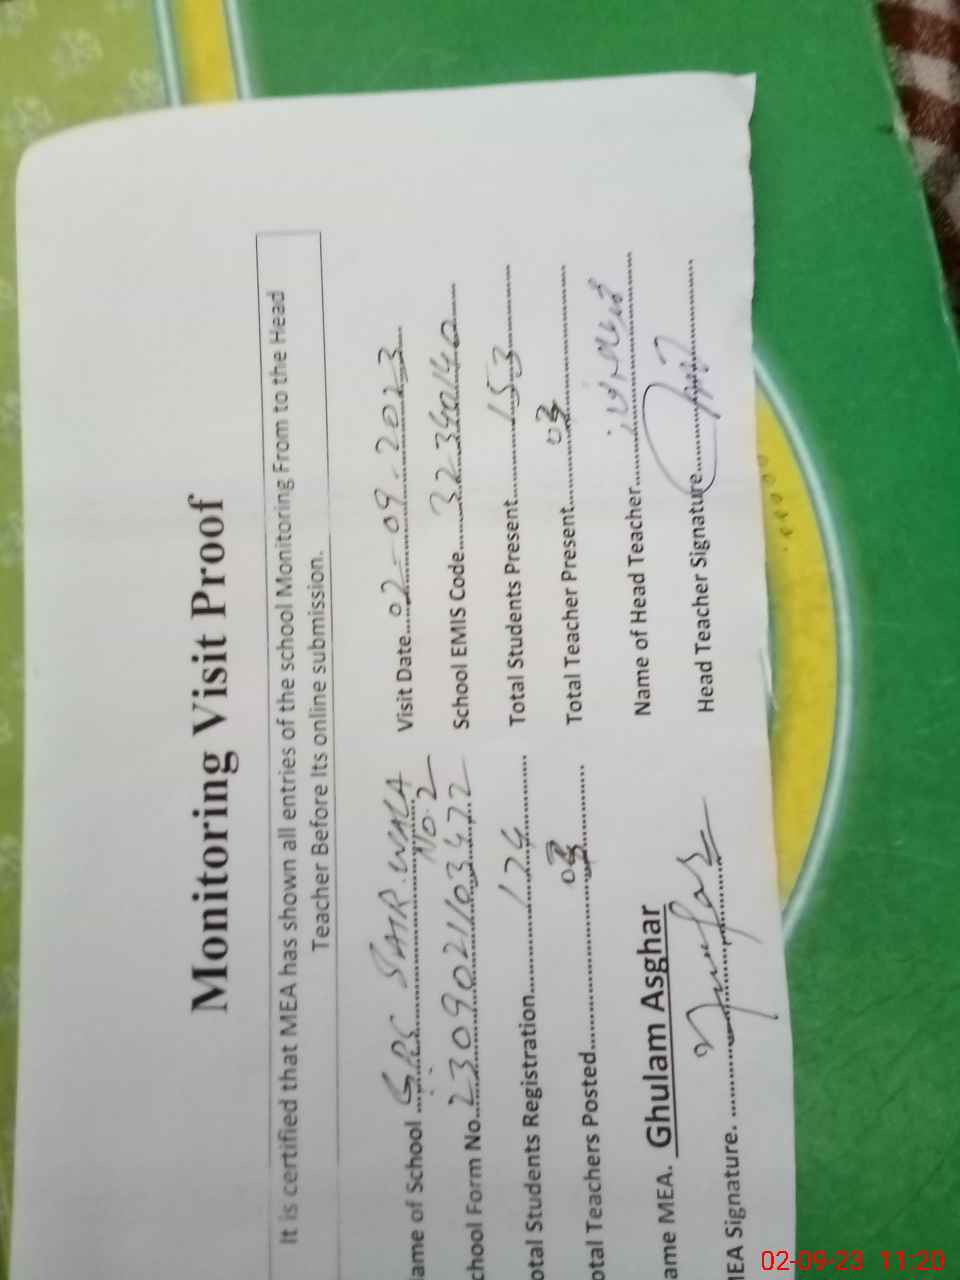 Monitoring Visit Proof
It is certified that MEA has shown all entries of the school Monitoring From to the Head
Teacher Before Its online submission.
ame of School GPS SAIR.WALA No.2 Visit Date 02-09-2023
chool Form No. 230902110 3472 School EMIS Code 32340140
otal Students Registration 174 Total Students Present 153
otal Teachers Posted Total Teacher Present
ame MEA. Ghulam Asghar Name of Head Teacher
IEA Signature. Head Teacher Signature
02-09-23 11:20